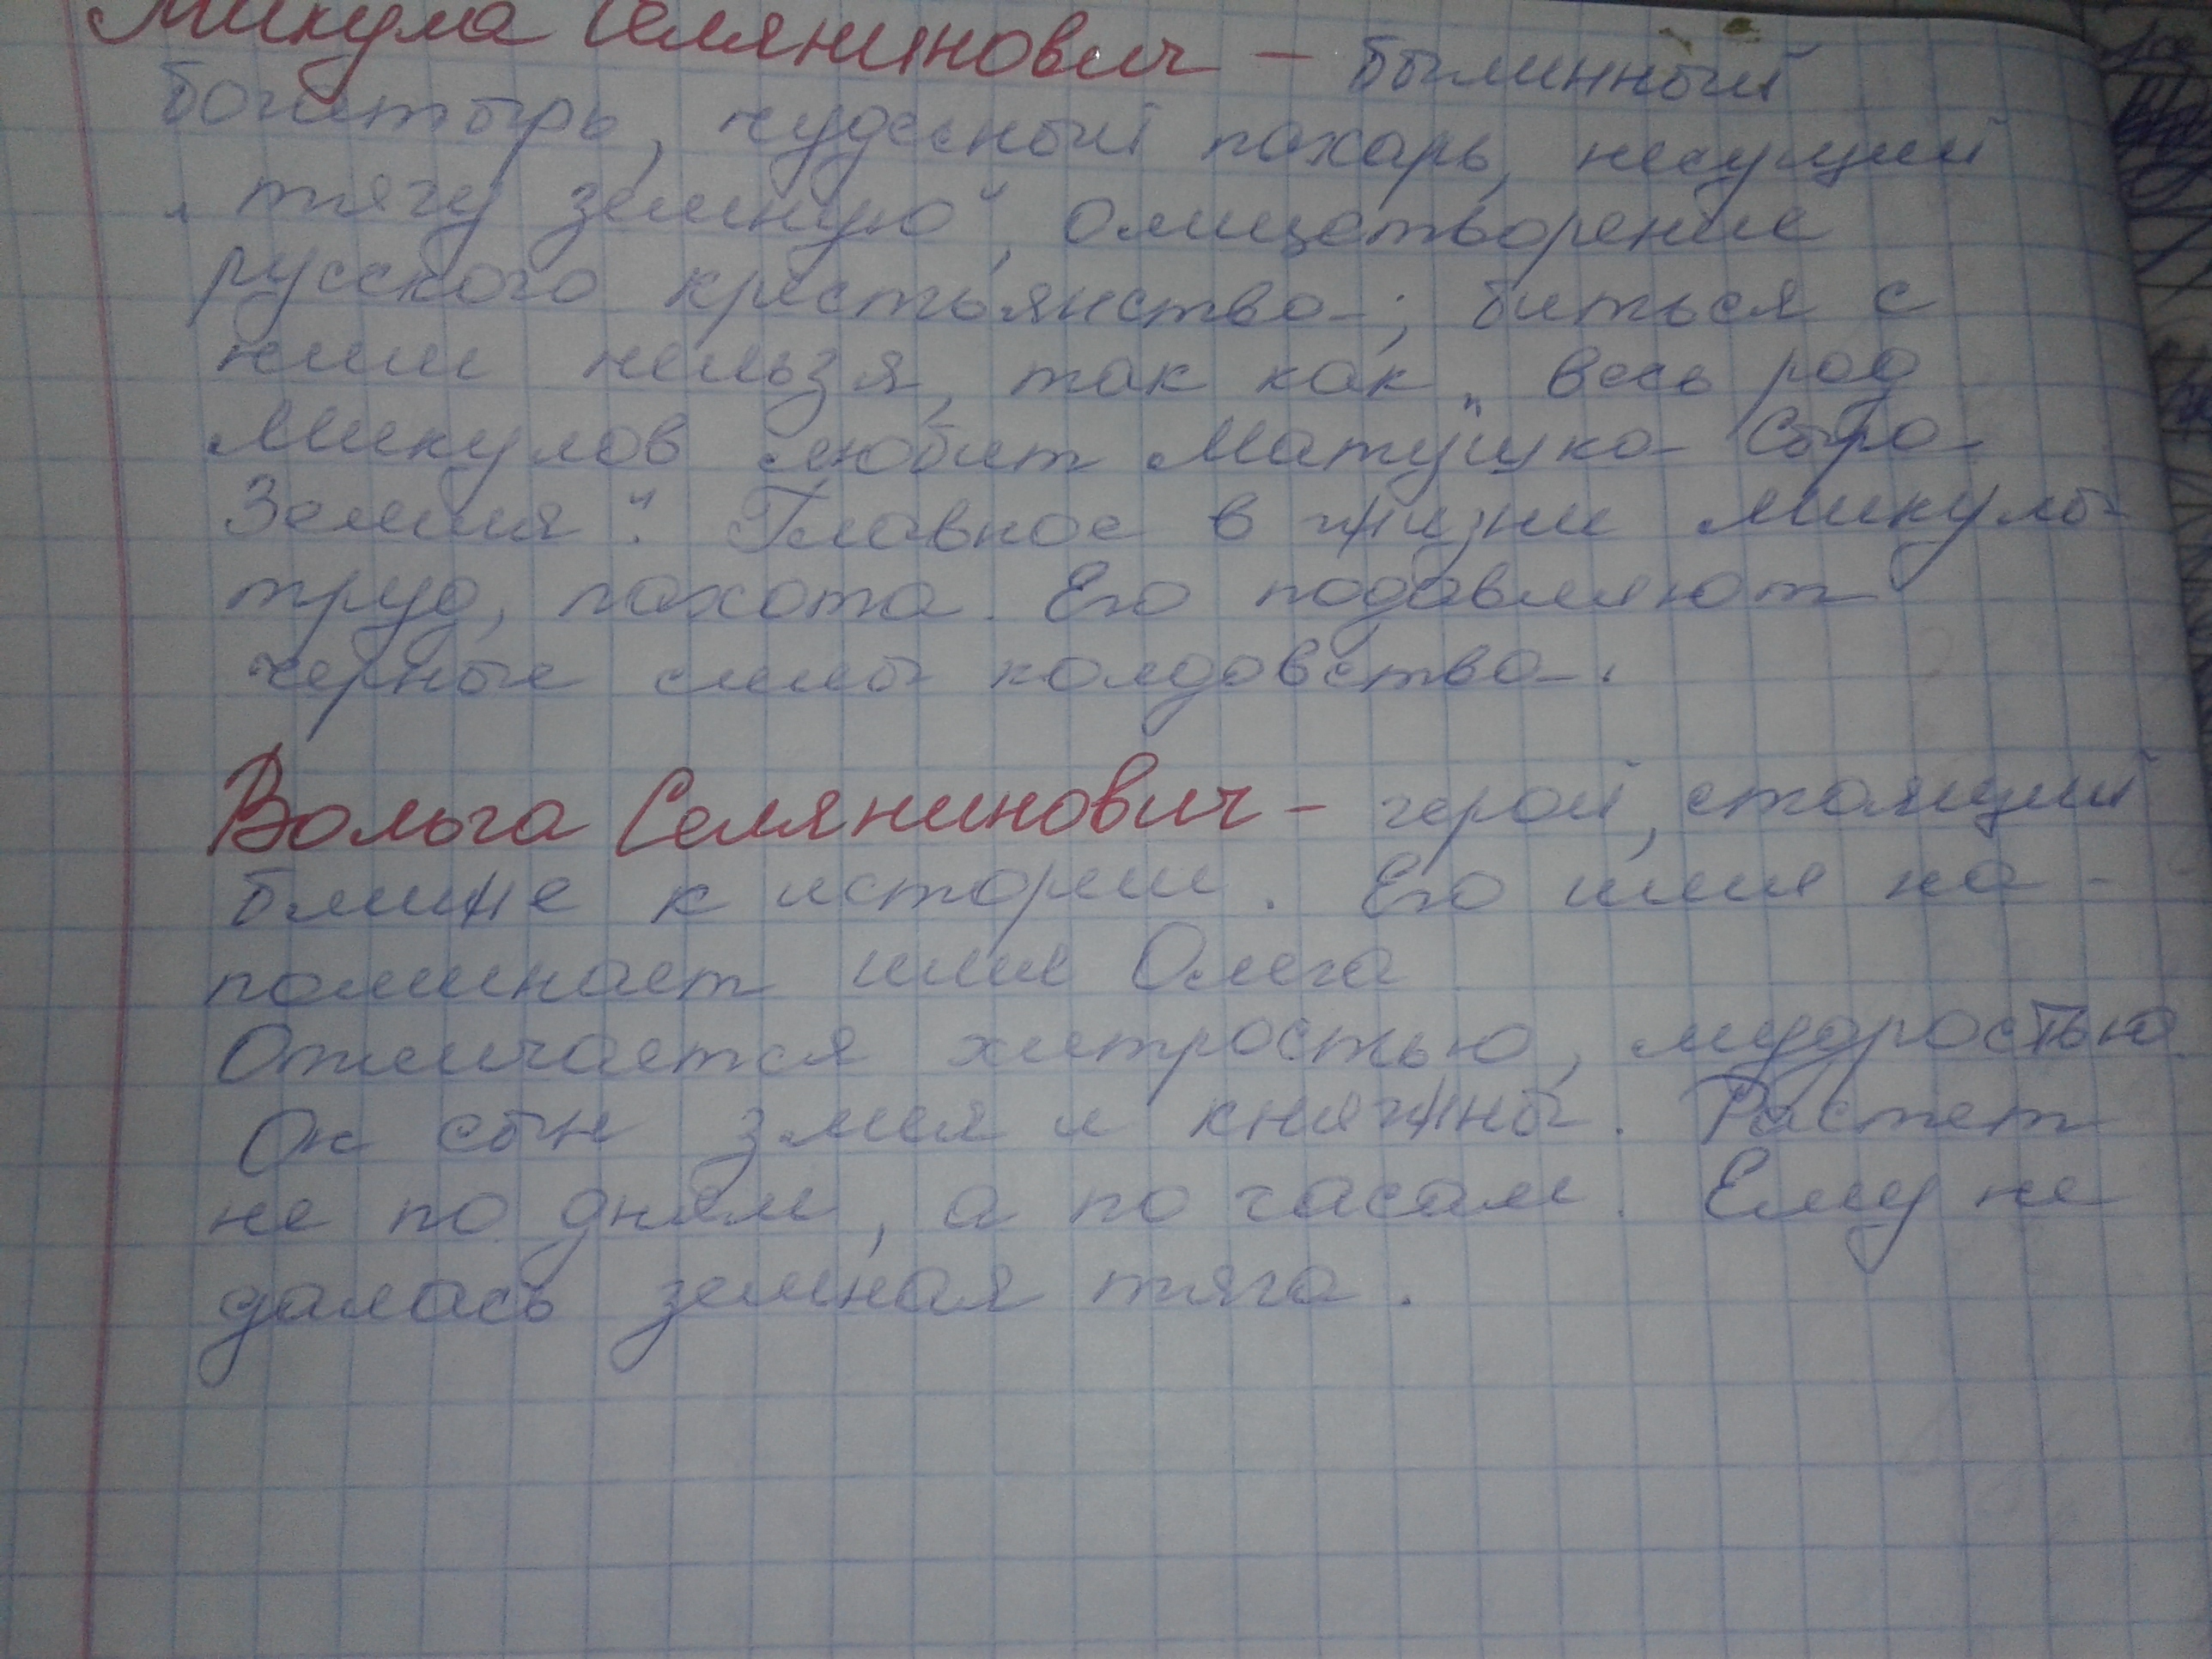 Микула Селянинович – былинный
богатырь, чудесный пахарь, несущий
„тягу земную“, олицетворение
русского крестьянства; биться с
ним нельзя, так как „весь род
Микулов любит Матушка Сыра
Земля“. Главное в жизни Микулы-
труд, пахота. Его подавляют
черные силы колдовства.
Вольга Селянинович – герой, стоящий
ближе к истории. Его имя на-
поминает имя Олега
Отличается хитростью, мудростью.
Он сын змея и княжны. Растет
не по дням, а по часам. Ему не
далась земная тяга.